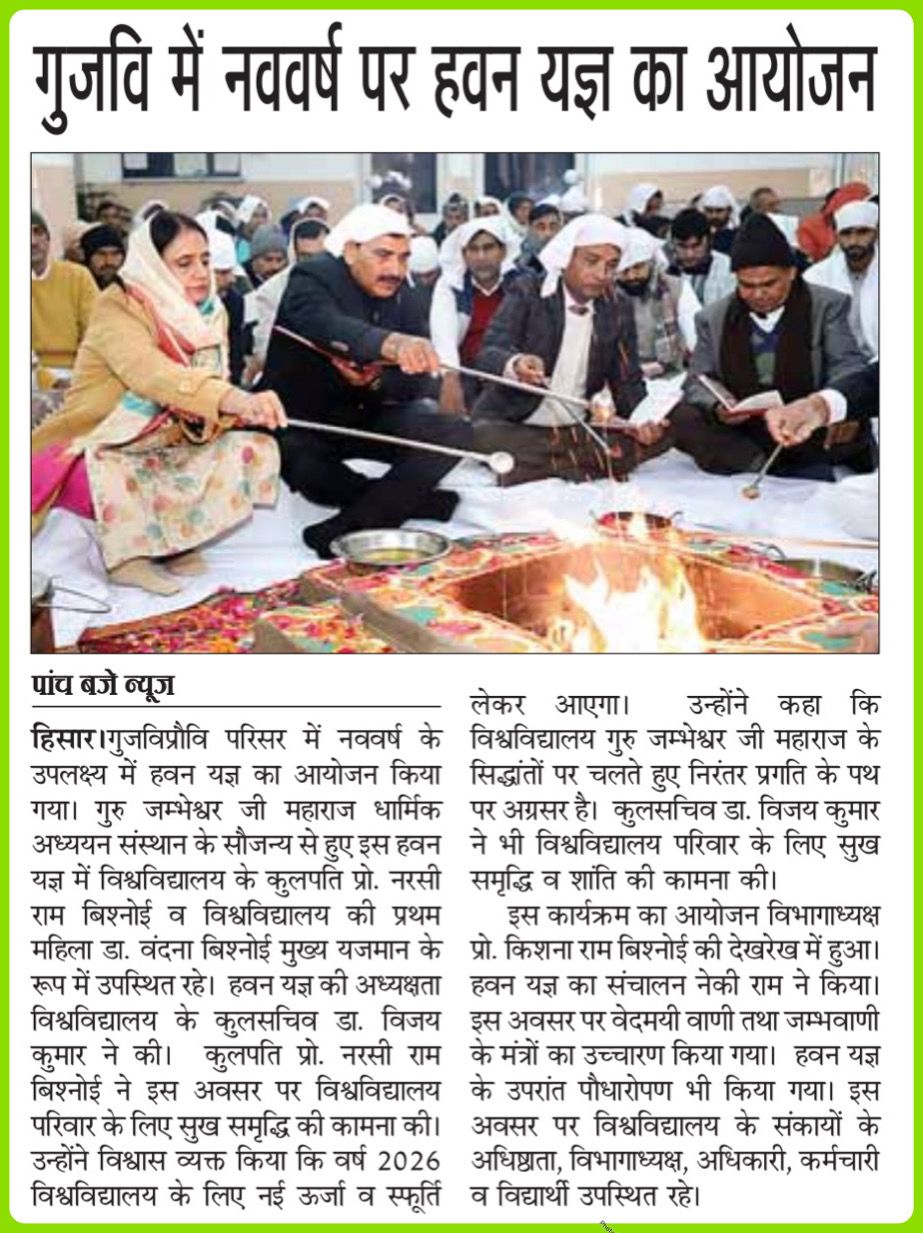 गुजवि में नववर्ष पर हवन यज्ञ का आयोजन
पांच बजे न्यूज
हिसार।गुजविप्रौवि परिसर में नववर्ष के
उपलक्ष्य में हवन यज्ञ का आयोजन किया
गया। गुरु जम्भेश्वर जी महाराज धार्मिक
अध्ययन संस्थान के सौजन्य से हुए इस हवन
यज्ञ में विश्वविद्यालय के कुलपति प्रो. नरसी
राम बिश्नोई व विश्वविद्यालय की प्रथम
महिला डा. वंदना बिश्नोई मुख्य यजमान के
रूप में उपस्थित रहे। हवन यज्ञ की अध्यक्षता
विश्वविद्यालय के कुलसचिव डा. विजय
कुमार ने की। कुलपति प्रो. नरसी राम
बिश्नोई ने इस अवसर पर विश्वविद्यालय
परिवार के लिए सुख समृद्धि की कामना की।
उन्होंने विश्वास व्यक्त किया कि वर्ष 2026
विश्वविद्यालय के लिए नई ऊर्जा व स्फूर्ति
लेकर आएगा। उन्होंने कहा कि
विश्वविद्यालय गुरु जम्भेश्वर जी महाराज के
सिद्धांतों पर चलते हुए निरंतर प्रगति के पथ
पर अग्रसर है। कुलसचिव डा. विजय कुमार
ने भी विश्वविद्यालय परिवार के लिए सुख
समृद्धि व शांति की कामना की।
इस कार्यक्रम का आयोजन विभागाध्यक्ष
प्रो. किशना राम बिश्नोई की देखरेख में हुआ।
हवन यज्ञ का संचालन नेकी राम ने किया।
इस अवसर पर वेदमयी वाणी तथा जम्भवाणी
के मंत्रों का उच्चारण किया गया। हवन यज्ञ
के उपरांत पौधारोपण भी किया गया। इस
अवसर पर विश्वविद्यालय के संकायों के
अधिष्ठाता, विभागाध्यक्ष, अधिकारी, कर्मचारी
व विद्यार्थी उपस्थित रहे।